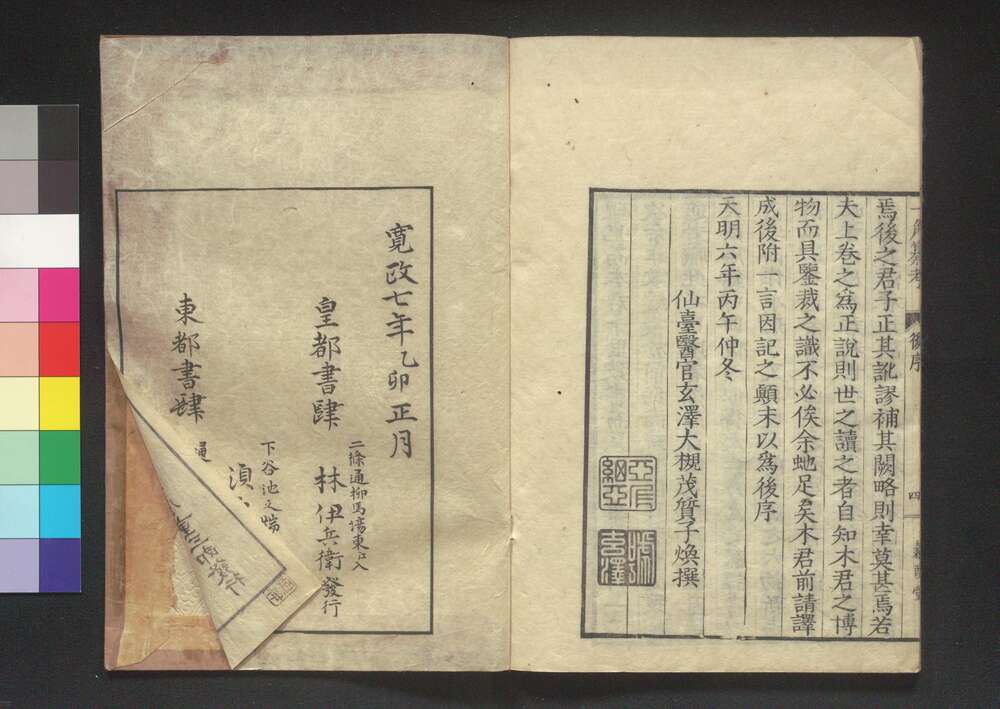 焉後之君子正其訛謬補其闕略則幸莫甚焉若
夫上卷之爲正說則世之讀之者自知木君之博
物而具鑒裁之識不必俟余虵足矣木君前請譯
成後附一言因記之顛末以爲後序
天明六年丙午仲冬
仙臺醫官玄澤大槻茂質子煥撰
一角纂考
後序
四
寛政七年乙卯正月
皇都書肆
二條通柳馬場東江入
林伊兵衛發行
下谷池之端
東都書肆
須
通